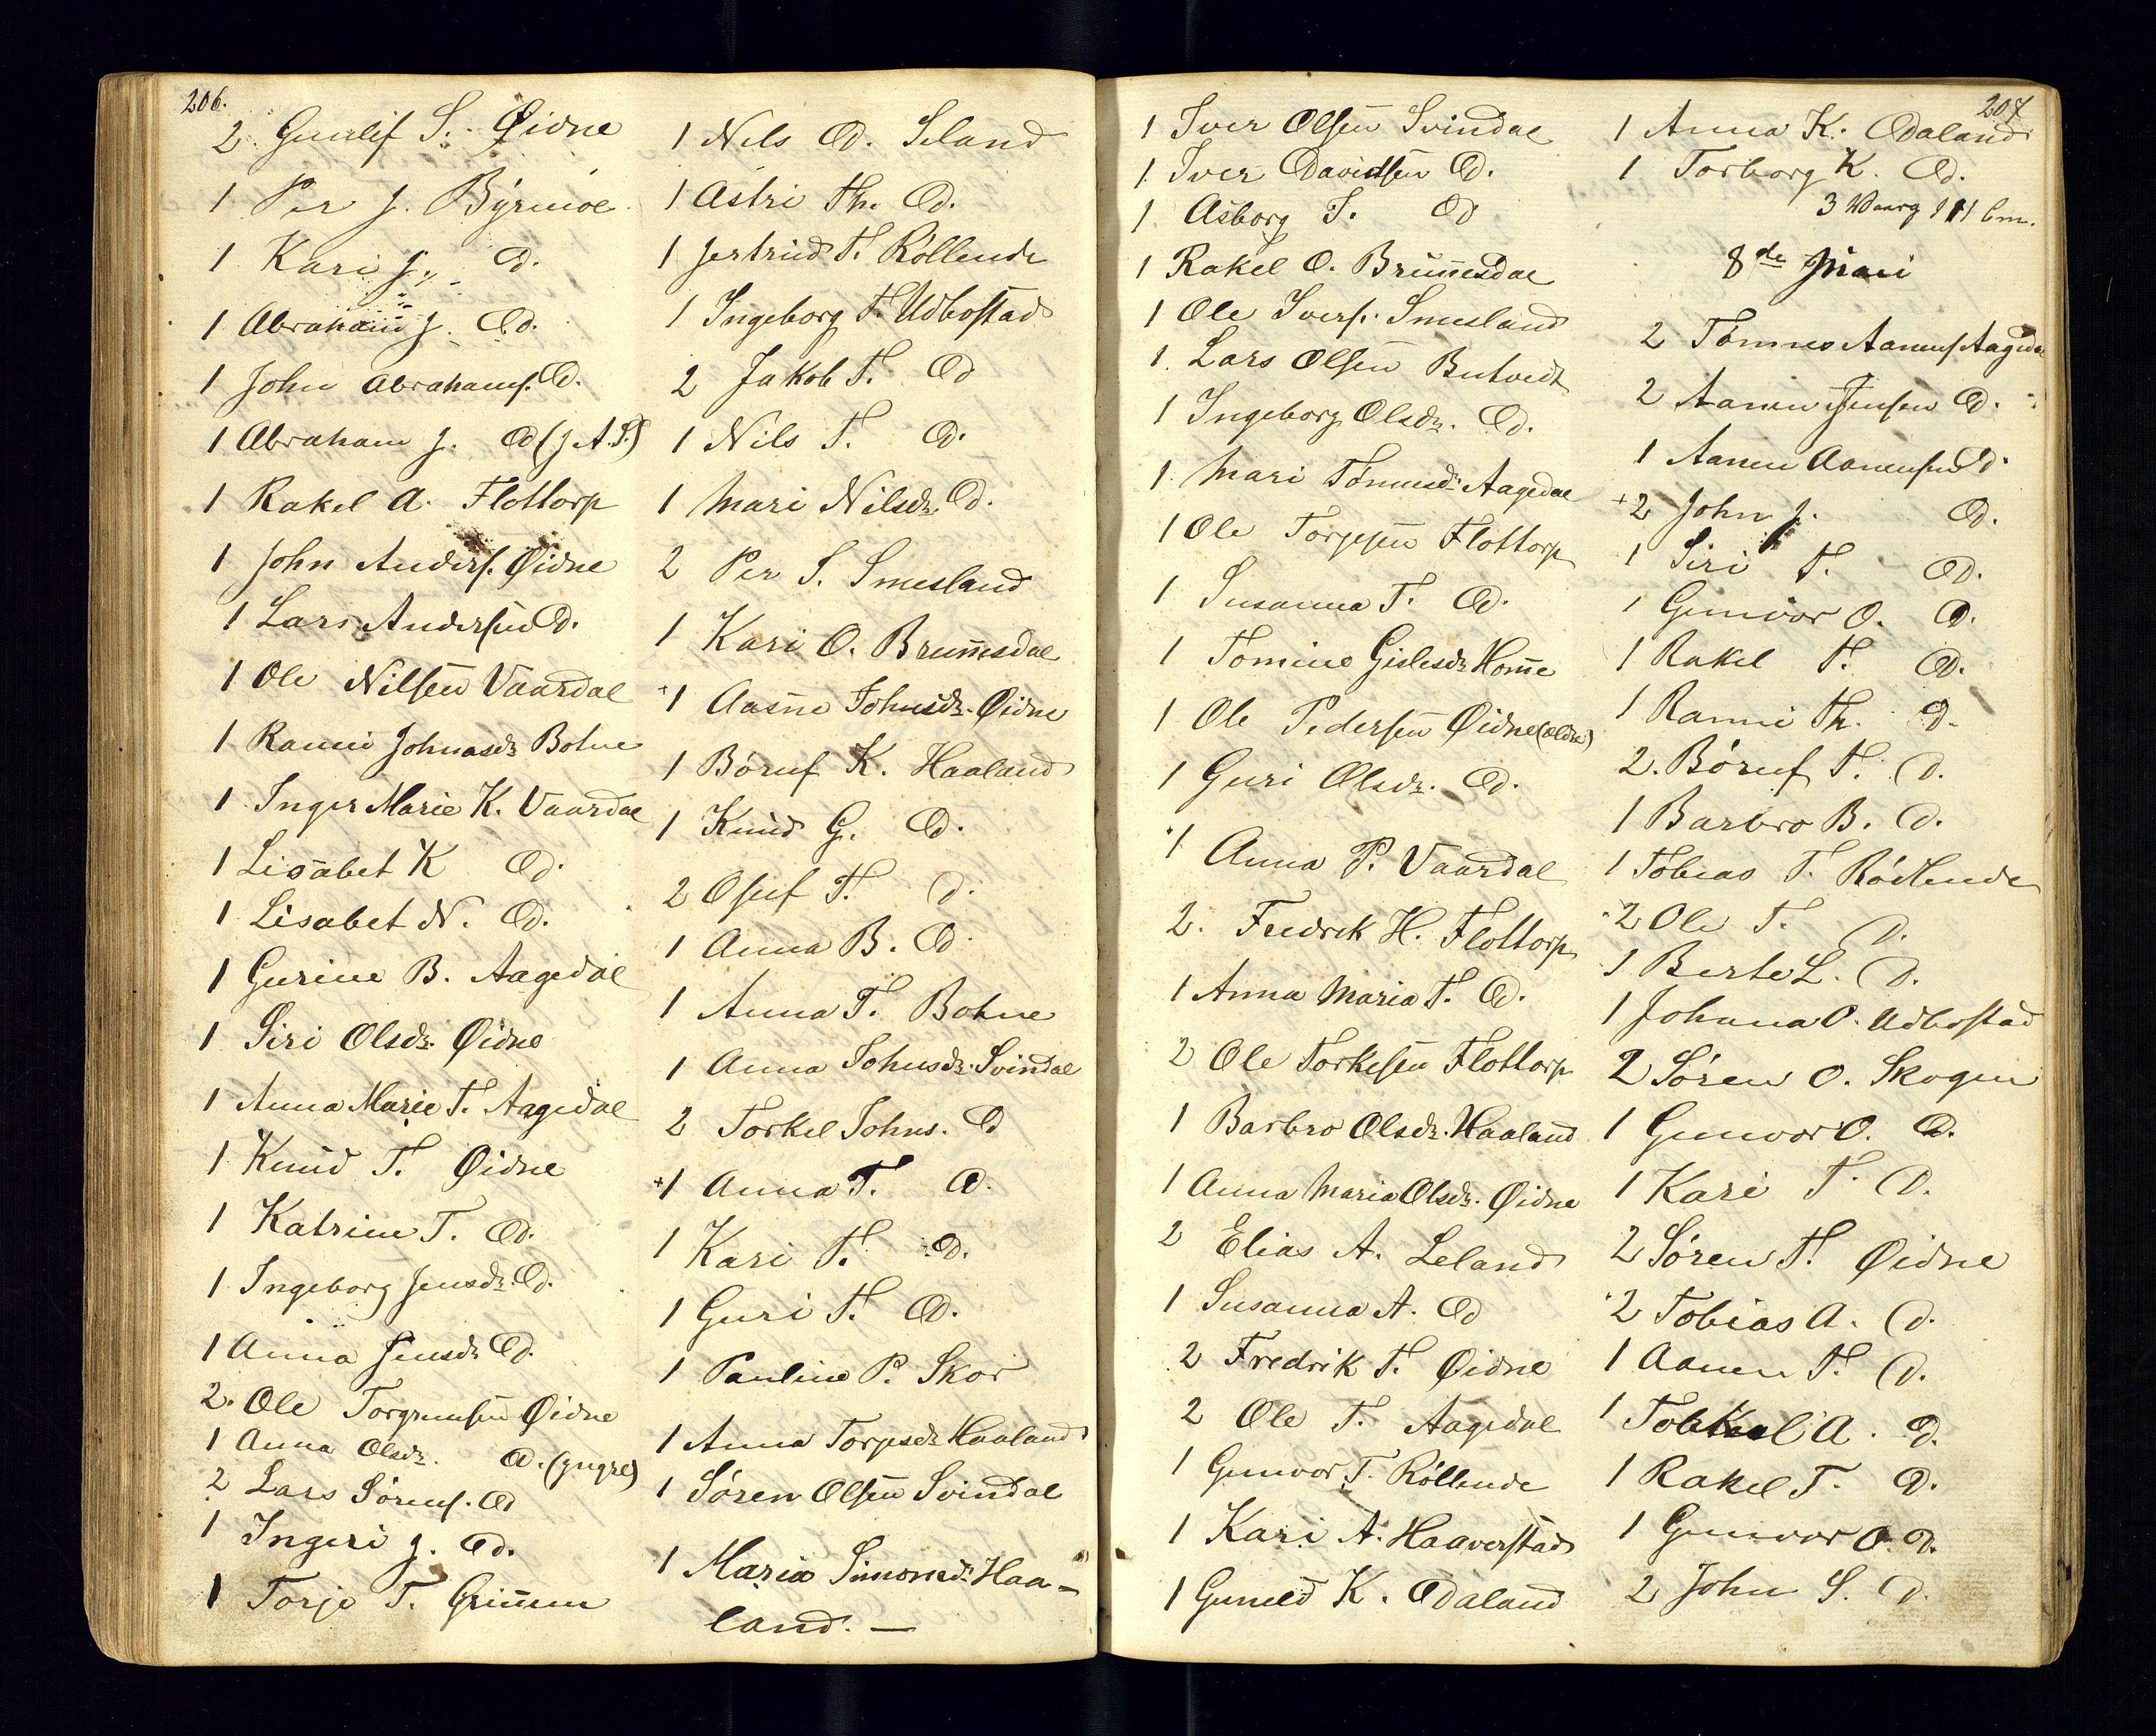 206.
2 Gunlif S. Øidne
1 Per J. Byrmoe
1 Kari J. Od.
1 Abraham J. Od.
1 John Abrahams. Od.
1 Abraham J. Od (J A. S.)
1 Rakel A. Flottorp
1 John Anders. Øidne
1 Lars Andersen Od.
1 Ole Nilsen Vaardal
1 Ranni Johnasdr Bohne
1 Inger Marie K. Vaardal
1 Lisabet K Od.
1 Lisabet N. Od.
1 Gurine B. Aagedal
1 Siri Olsdr. Øidne
1 Anna Marie T. Aagedal
1 Knud T. Øidne
1 Katrine T. Od.
1 Ingeborg Jensdr. Od.
1 Anna Jensdr Od.
2. Ole Torgrimsen Øidne
1 Anna Olsdr. Od. (yngre)
2 Lars Sørens. Od
1 Ingeri J. Od.
1 Torje T. Grimmen
1 Nils Od. Seland
1 Astri Th. Od.
1 Jertrud T. Röllende
1 Ingeborg T. Udbostad
2 Jakob T. Od
1 Nils T. Od.
1 Mari Nilsdr. Od.
2 Per S. Smesland
1 Kari O. Brunnesdal
+1 Aasne Johnsdr. Øidne
1 Böruf K. Haaland
1 Knud G. Od.
2 Osuf T. Od.
1 Anna B. Od
1 Anna T. Bohne
1 Anna Johnsdr. Svindal
2 Torkel Johns. Od
+1 Anna T. Od.
1 Kari T. Od.
1 Guri T. Od.
1 Pauline P. Skor
1 Anna Torjesdr Haaland
1 Søren Olsen Svindal
1 Maria Simonsdr. Haa-
land. —
207
1 Iver Olsen Svindal
1 Iver Davidsen Od.
1 Asborg T. Od
1 Rakel O. Brunnesdal
1 Ole Ivers. Smesland
1. Lars Olsen Butvedt
1 Ingeborg Olsdr. Od.
1 Mari Tønnesdr Aagedal
1 Ole Torjesen Flottorp
1 Susanna T. Od.
1 Tomine Gislesdr Homme
1 Ole Pedersen Øidne (ældre)
1 Guri Olsdr. Od.
1 Anna P. Vaardal
2. Fredrek H. Flottorp
1 Anna Maria T. Od.
2 Ole Torkelsen Flottorp
1 Barbro Olsdr. Haaland
1 Anna Maria Olsdr. Øidne
2 Elias A. Leland
1 Susanna A. Od
2 Fredrik T. Øidne
2 Ole T. Aagedal
1 Gunvor T. Röllende
1 Kari A. Haaverstad
1 Gunild K. Odaland
1 Anna K. Odaland
1 Torborg K. Od.
3
8de
2 Tønnes Aanens Aagedal
2 Aanen Jensen Od.
1 Aanen Aanensen Od.
+2 John J. Od.
1 Siri T. Od.
1 Gunvor O. Od.
1 Rakel T. Od.
1 Ranni Th. Od.
2. Böruf T. Od.
1 Barbro B. Od.
1 Tobias T. Rödlende
2 Ole T. Od.
1 Berte L. Od.
1 Johanna O. Udbostad
2 Søren O. Skogen
1 Gunvor O. Od.
1 Kari T. Od.
2 Søren T. Øidne
2 Tobias A. Od.
1 Aanen T. Od.
1 Torkel A. Od.
1 Rakel T. Od.
1 Gunvor O. Od.
2 John S. Od.